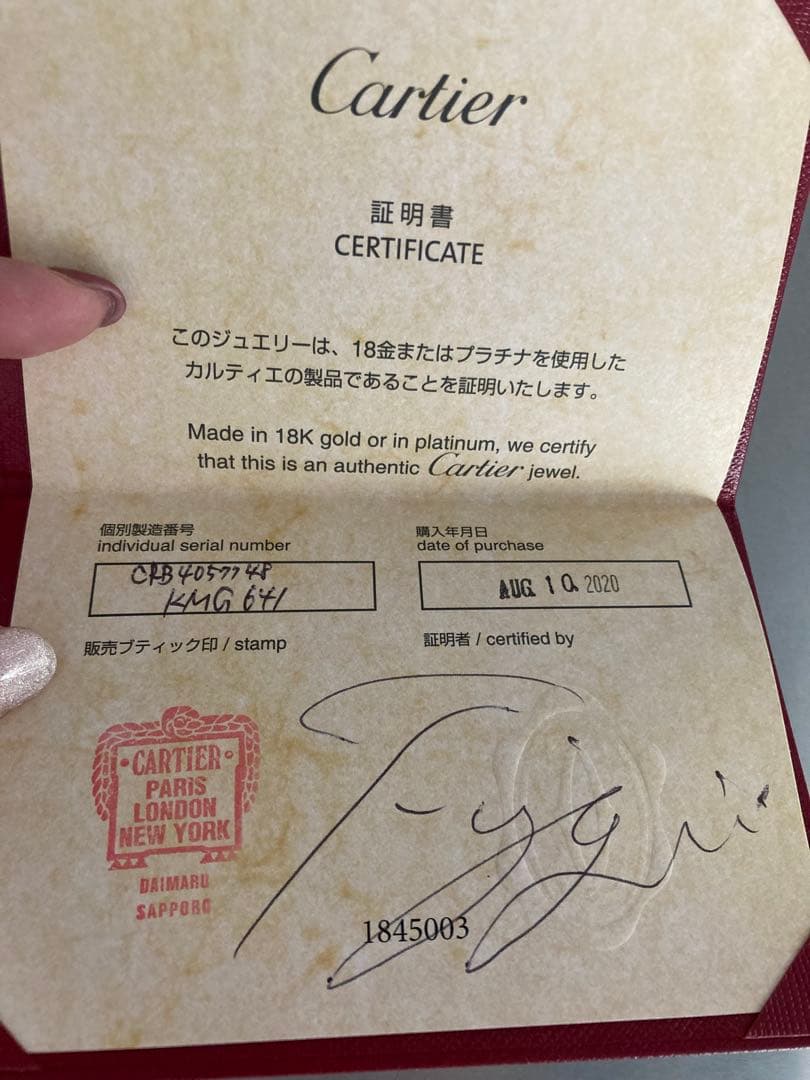 Cartier
証明書
CERTIFICATE
このジュエリーは、18金またはプラチナを使用した
カルティエの製品であることを証明いたします。
Made in 18K gold or in platinum, we certify
that this is an authentic Cartier jewel.
個別製造番号
individual serial number
CRB4057748
KMG641
購入年月日
date of purchase
AUG 10 2020
販売ブティック印 / stamp
証明者 / certified by
CARTIER
PARIS
LONDON
NEW YORK
DAIMARU
SAPPORO
1845003